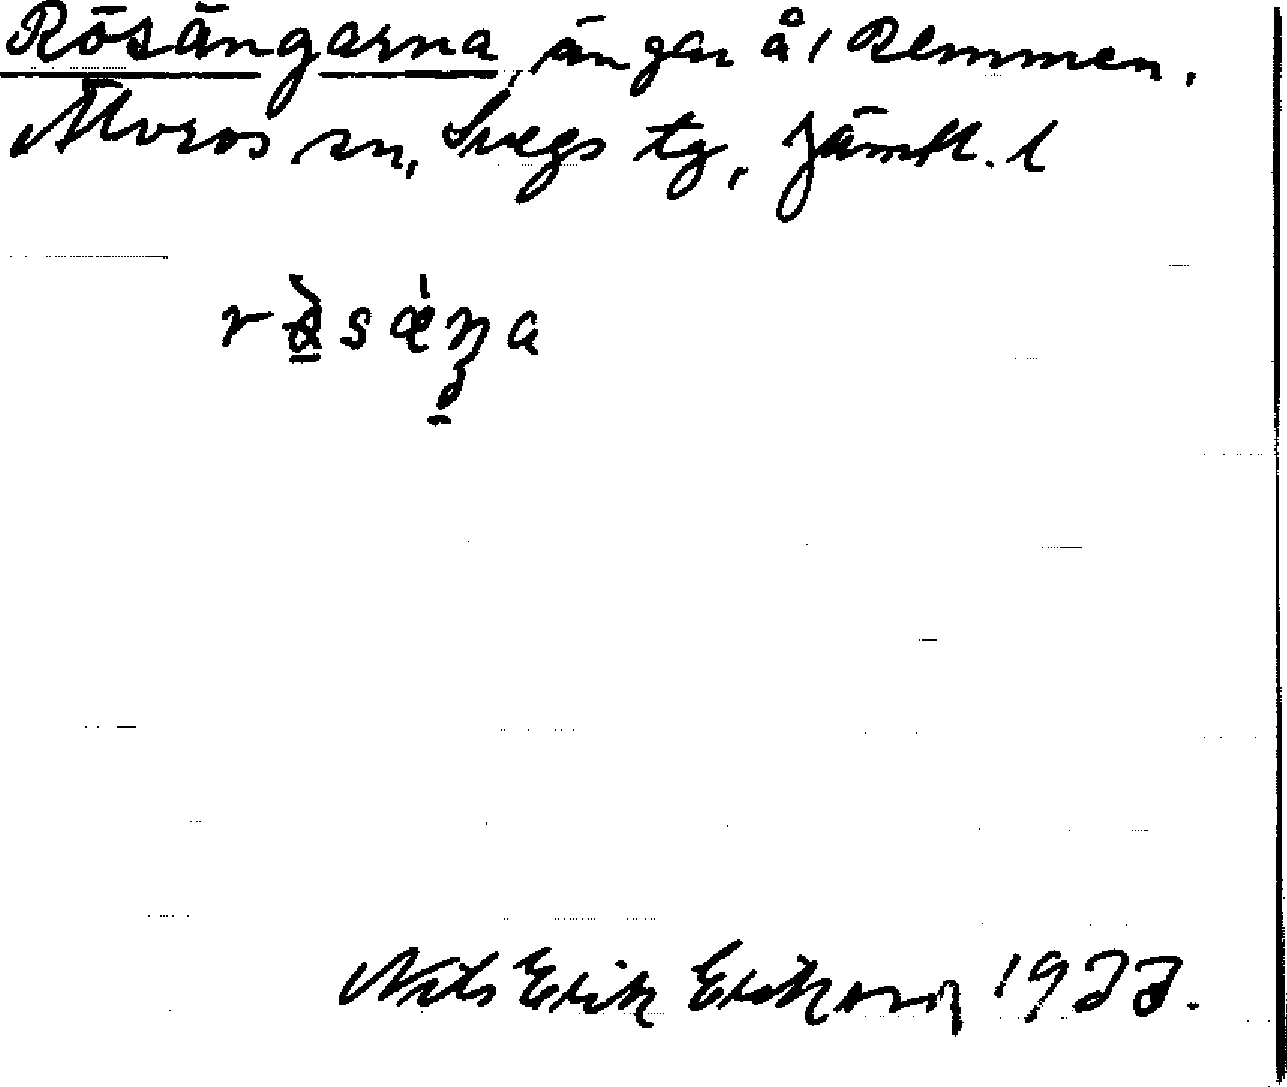 Rösängarna, ängar å Remmen,
Älvros sn, Svegs tg, Jämtl. l
Nils Erik Eriksson 1933.